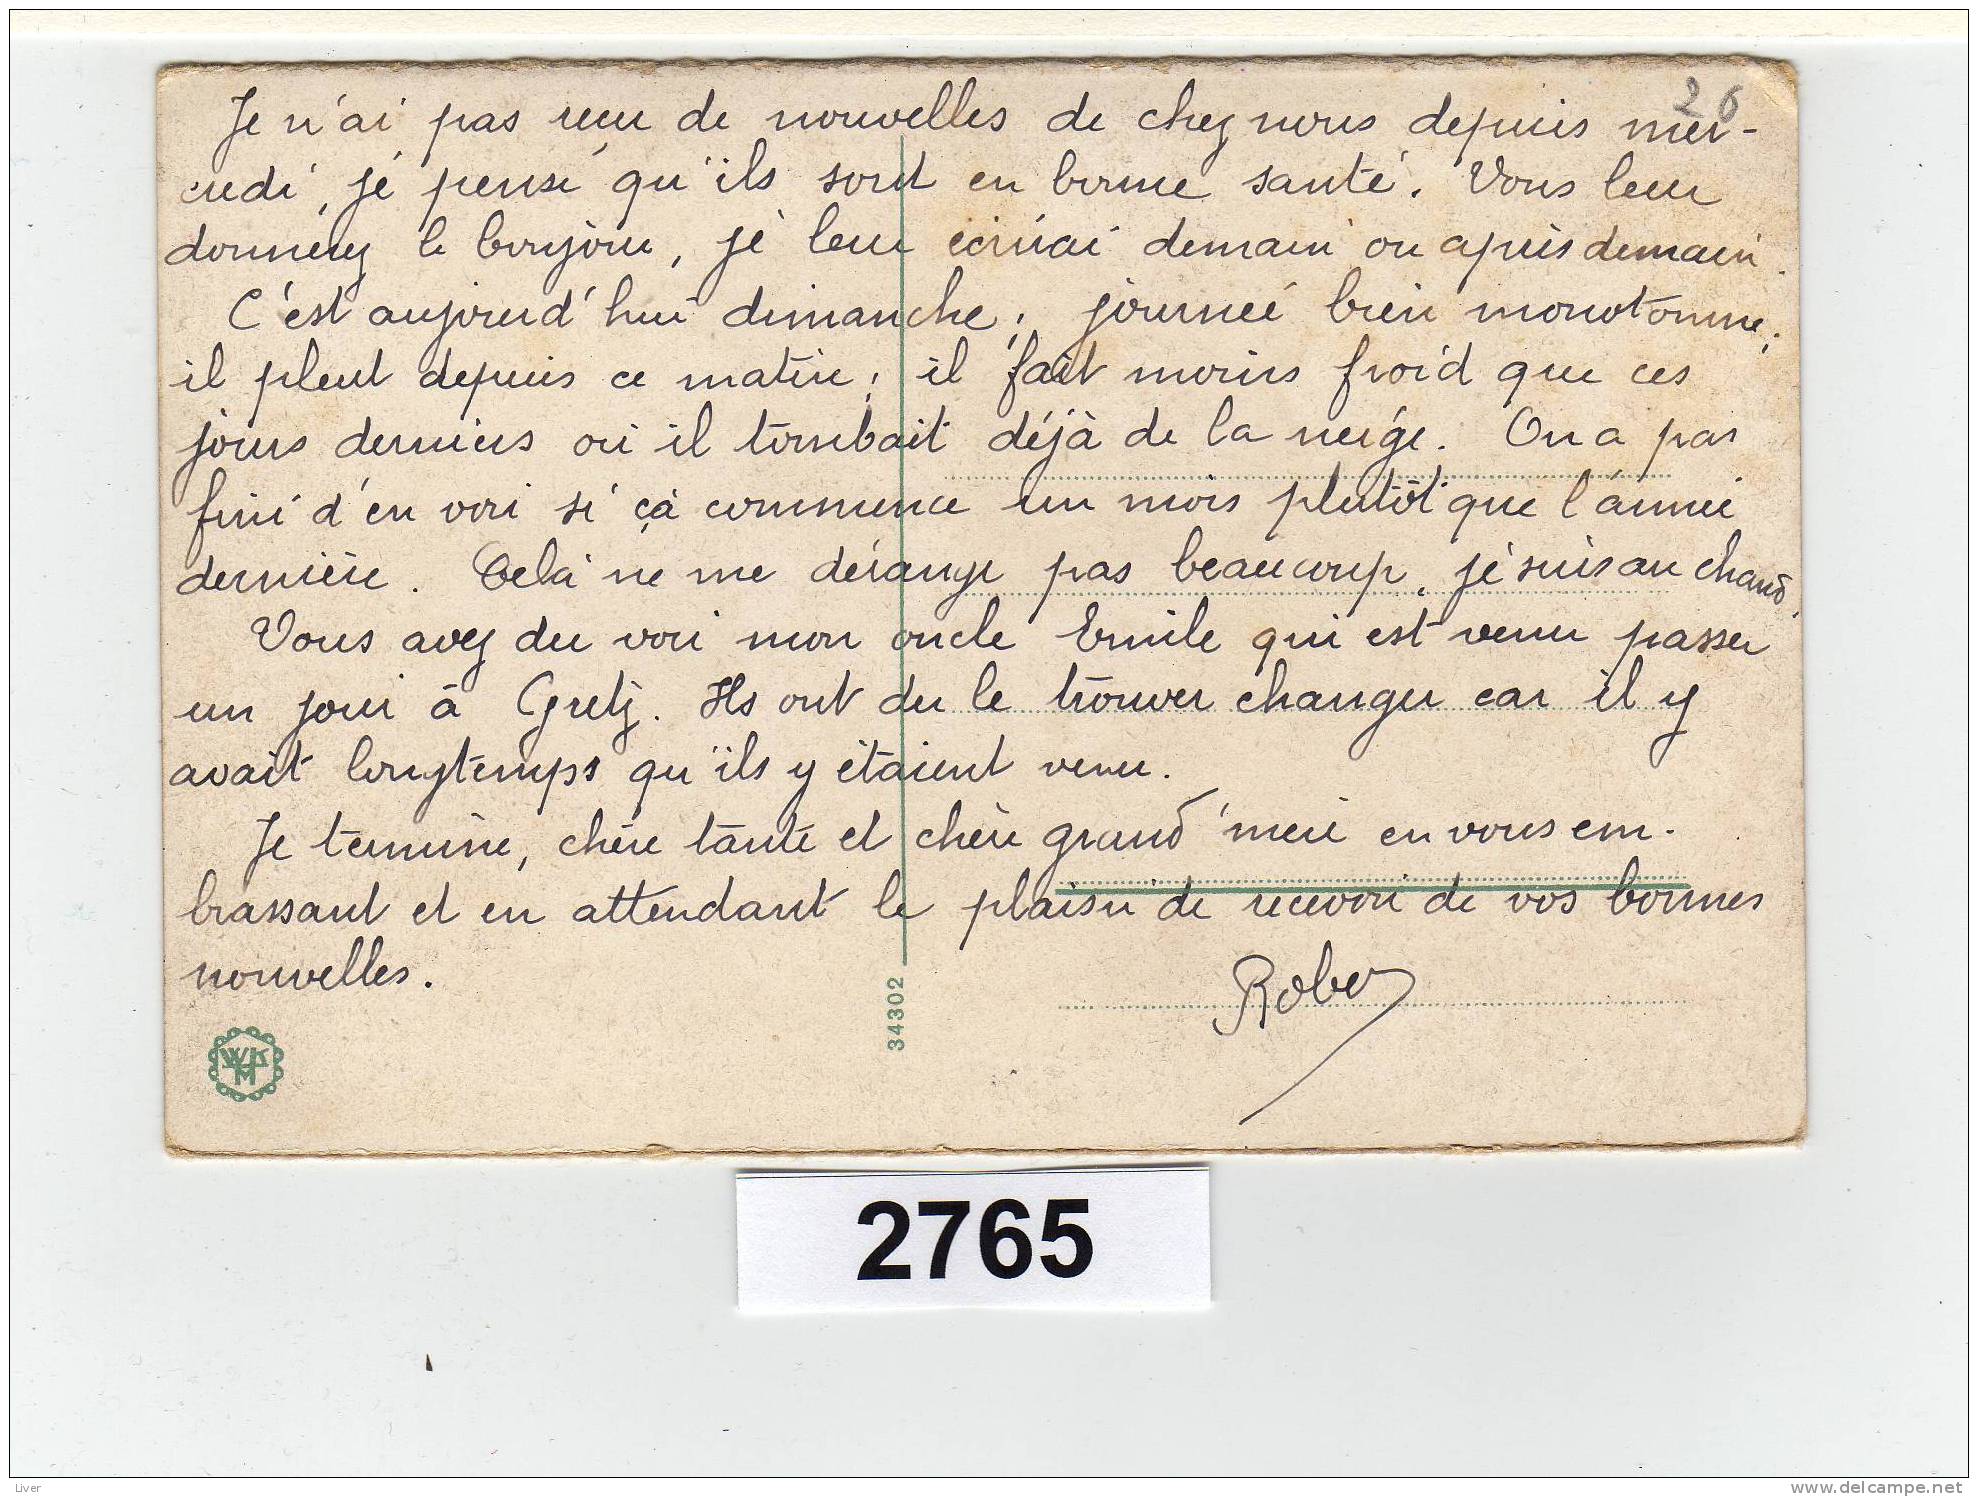 26
Je n'ai pas reçu de nouvelles de chez nous depuis mer-
credi, je pense qu'ils sont en bonne santé. Vous leur
donnerez le bonjour, je leur écrirai demain ou après demain.
C'est aujourd'hui dimanche; journée bien monotomne;
il pleut depuis ce matin; il fait moins froid que ces
jours derniers où il tombait déjà de la neige. On a pas
fini d'en voir si çà commence un mois plutôt que l'année
dernière. Celà ne me dérange pas beaucoup, je suis au chaud.
Vous avez du voir mon oncle Emile qui est venu passer
un jour à Gretz. Ils ont du le trouver changer car il y
avait longtemps qu'ils y étaient venu.
Je termine, chère tante et chère grand'mère en vous em-
brassant et en attendant le plaisir de recevoir de vos bonnes
nouvelles.
Rober
34302
WK
M
2765
Liver
www.delcampe.net